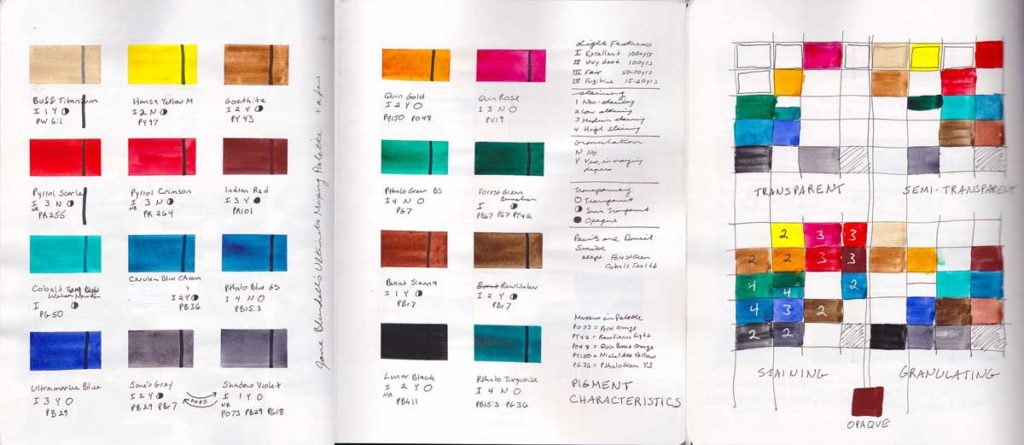 Buff Titanium
I 1 Y ◑
PW 6:1
Hansa Yellow M
I 2 N ◑
PY97
Goethite
I 2 Y ◑
PY 43
Pyrrol Scarlet
I 3 N ◑
NR
PR255
Pyrrol Crimson
I 3 N ◑
NR
PR 264
Indian Red
I 3 Y ●
PR101
Cobalt Teal
I ◑
PG50
Cerulean Blue Chrom
I 2 Y ◑
PB36
Phthalo Blue GS
I 4 N O
PB15:3
Ultramarine Blue
I 3 Y O
PB29
Jane's Gray
I 2 Y ◑
NR
PB29 PBr7
Shadow Violet
I 1 Y O
NR
PO73 PB29 PG18
Jane Blundell's Ultimate Mixing Palette + a few
Quin Gold
I 2 Y O
PY150 PO48
Quin Rose
I 3 N O
PV19
Phthalo Green BS
I 4 N O
PG7
Forest Green
I ◑
PBk7 PG7 PY42
Burnt Sienna
I 1 Y ◑
PBr7
Burnt Raw Umber
I 2 Y ◑
PBr7
Lunar Black
I 2 Y O
NR
PBk11
Phthalo Turquoise
I 4 N O
PB15:3 PG36
Light Fastness
I Excellent 100+yrs
II Very Good 100yrs
III Fair 50-70yrs
IIII Fugitive 15-20yrs
Staining
1 Non-staining
2 Low staining
3 Medium staining
4 High Staining
Granulation
N No
Y Yes, in varying
degrees
Transparency
O Transparent
◑ Semi Transparent
● Opaque
Paints are Daniel
Smith
except Forest Green
Cobalt Teal Lt
Missing in Palette
PO73 = Pyrrol Orange
PO48 = Quin Burnt Orange
PY150 = Nickel Azo Yellow
PG36 = Phthalo Green YS
PIGMENT
CHARACTERISTICS
TRANSPARENT
SEMI-TRANSPARENT
2 3 3
2 2 3 3
4 4 2
4 3 2
2 2
STAINING
GRANULATING
OPAQUE